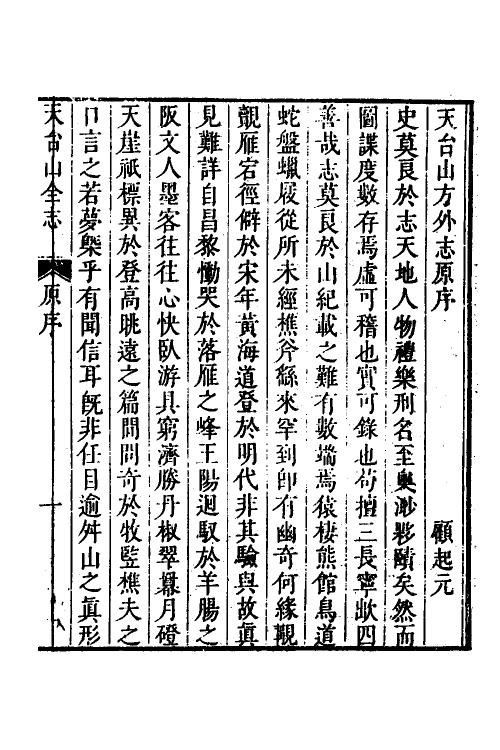 天台山方外志原序　顧起元
史莫良於志天地人物禮樂刑名至奧渺夥賾矣然而
圖諜度數存焉虛可稽也實可錄也苟擅三長寧歉四
善哉志莫良於山紀載之難有數端焉猿棲熊館鳥道
蛇盤蠟屐從所未經樵斧繇來罕到卽有幽奇何緣覯
觀雁宕徑僻於宋年黃海道登於明代非其驗與故眞
見難詳自昌黎慟哭於落雁之峰王陽迴馭於羊腸之
阪文人墨客往往心快臥游具窮濟勝丹椒翠巘月磴
天崖祇標異於登高眺遠之篇間問奇於牧監樵夫之
口言之若夢槩乎有聞信耳旣非任目逾舛山之眞形
天台山全志　原序　一